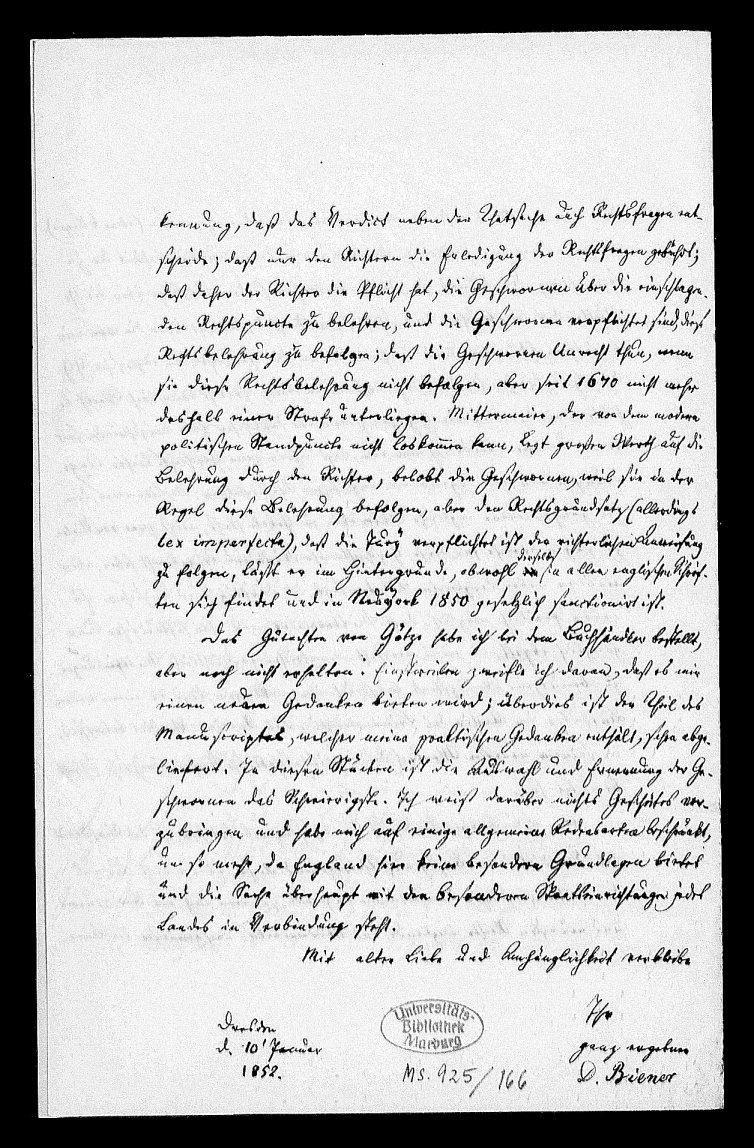 kennung, daß das Verdict neben der Thatsache auch Rechtsfragen ent-
scheide; daß nur den Richtern die Erledigung der Rechtsfragen gebührt;
daß daher der Richter die Pflicht hat, die Geschwornen über die einschlagen-
den Rechtspuncte zu belehren, und die Geschwornen verpflichtet sind, diese
Rechtsbelehrung zu befolgen; daß die Geschwornen Unrecht thun, wenn
sie diese Rechtsbelehrung nicht befolgen, aber seit 1670 nicht mehr
deshalb einer Strafe unterliegen. Mittermaier, der von dem modern
politischen Standpuncte nicht loskommen kann, legt großen Werth auf die
Belehrung durch den Richter, belobt die Geschwornen, weil sie in der
Regel diese Belehrung befolgen, aber den Rechtsgrundsatz (allerdings
lex imperfecta), daß die Jury verpflichtet ist der richterlichen Anweisung
zu folgen, läßt er im Hintergrunde, obwohl derselbe in allen englischen Schrif-
ten sich findet und in Neuyork 1850 gesetzlich sanctionirt ist.
Das Gutachten von Götze habe ich bei dem Buchhändler bestellt,
aber noch nicht erhalten. Einstweilen zweifle ich daran, daß es mir
einen neuen Gedanken bieten wird; überdies ist der Theil des
Manuscriptes, welcher meine praktischen Gedanken enthält, schon abge-
liefert. In diesen Stücken ist die Auswahl und Ernennung der Ge-
schwornen das Schwierigste. Ich weiß darüber nichts Gescheites vor-
zubringen und habe mich auf einige allgemeine Redensarten beschränkt,
um so mehr, da England hier keine besondern Grundlagen bietet
und die Sache überhaupt mit den besonderen Staatseinrichtungen jedes
Landes in Verbindung steht.
Mit alter Liebe und Anhänglichkeit verbleibe
Ihr
ganz ergebner
D. Biener
Dresden
d. 10' Januar
1852.
Universitäts-
Bibliothek
Marburg
Ms. 925/166